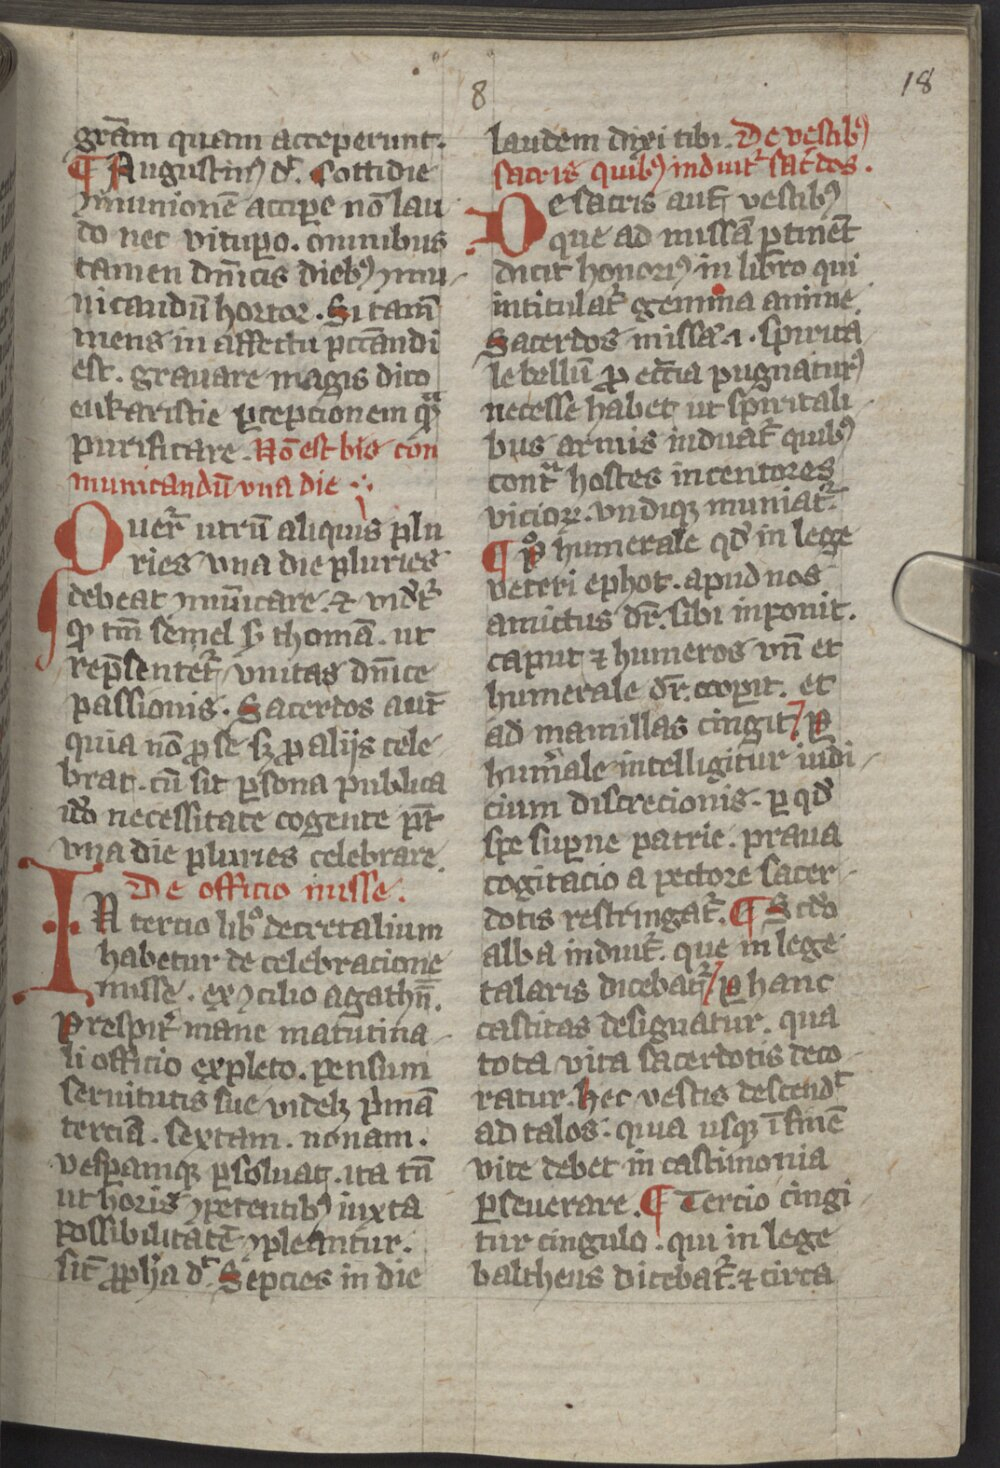 8
18
gr̄am quam acceperunt.
¶ Augustinꝰ dͭ. Cottidie
ꝯmunionē accipe nō lau
do nec vitupo. omnibus
tamen dn̄icis diebꝰ ꝯmu-
nicandū hortor. Si tam̄
mens in affectu pctandi
est. grauare magis dico
eukaristie ꝑcepcionem qͣ̄
purificare. Nō est bis com
municandū vna die
Querͬ utrū aliquis plu
ries vna die pluries
debeat ꝯmūicare. et vidͬ
ꝙ tm̄ semel ẜ thomā. ut
rep̄sentetͬ vnitas dn̄ice
passionis. Sacerdos aut̄
quia nō ꝓ se sꝫ ꝓ alijs cele
brat. cū sit ꝑsona publica
io necessitate cogente pt̄
vna die pluries celebrare.
De officio misse.
IN tercio libͦ decretalium
habetur de celebracione
misse. ex ꝯcilio agathn̄.
Prespit̄ mane matutina-
li officio expleto. pensum
seruitutis sue videlꝫ pͥmā
terciā. sextam. nonam.
vespamqꝫ ꝑsoluat. ita tn̄
ut horis ꝯpetentibꝰ iuxta
possibilitatē ꝯpleantur.
sic̄ ꝓpha dͭ. Sepcies in die
laudem dixi tibi. De vestibꝰ
sacris quibꝰ induitͬ sac̄dos.
De sacris aut̄ vestibꝰ
que ad missā ꝑtinēt
dicit honoriꝰ in libro qui
intitulatͬ gemma anime.
Sacerdos missaͬ .i. spirita
le bellū ꝓ ecc̄ia pugnaturꝰ
necesse habet ut spiritali-
bus armis induatͬ quibꝰ
contͣ hostes incentores
vicioꝝ. vndiqꝫ muniatͬ.
¶ Pͦ humerale qd̄ in lege
veteri ephot. apud nos
amictus dr̄. sibi inponit.
caput ⁊ humeros vn̄ et
humerale dr̄. coopit. et
ad mamillas cingit / ꝑ
hum̄ale intelligitur iudi-
cium discrecionis. ꝑ qd̄
spe supne patrie. praua
cogitacio a pectore sacer-
dotis restringatͬ. ¶ Scdͦo
alba induitͬ. que in lege
talaris dicebatͬ / ꝑ hanc
castitas designatur. qua
tota vita sacerdotis deco-
ratur. hec vestis descendͭ
ad talos. quia usqꝫ ī finē
vite debet in castimonia
ꝑseuerare. ¶ Tercio cingi-
tur cingulo. qui in lege
baltheus dicebatͬ. ⁊ circa